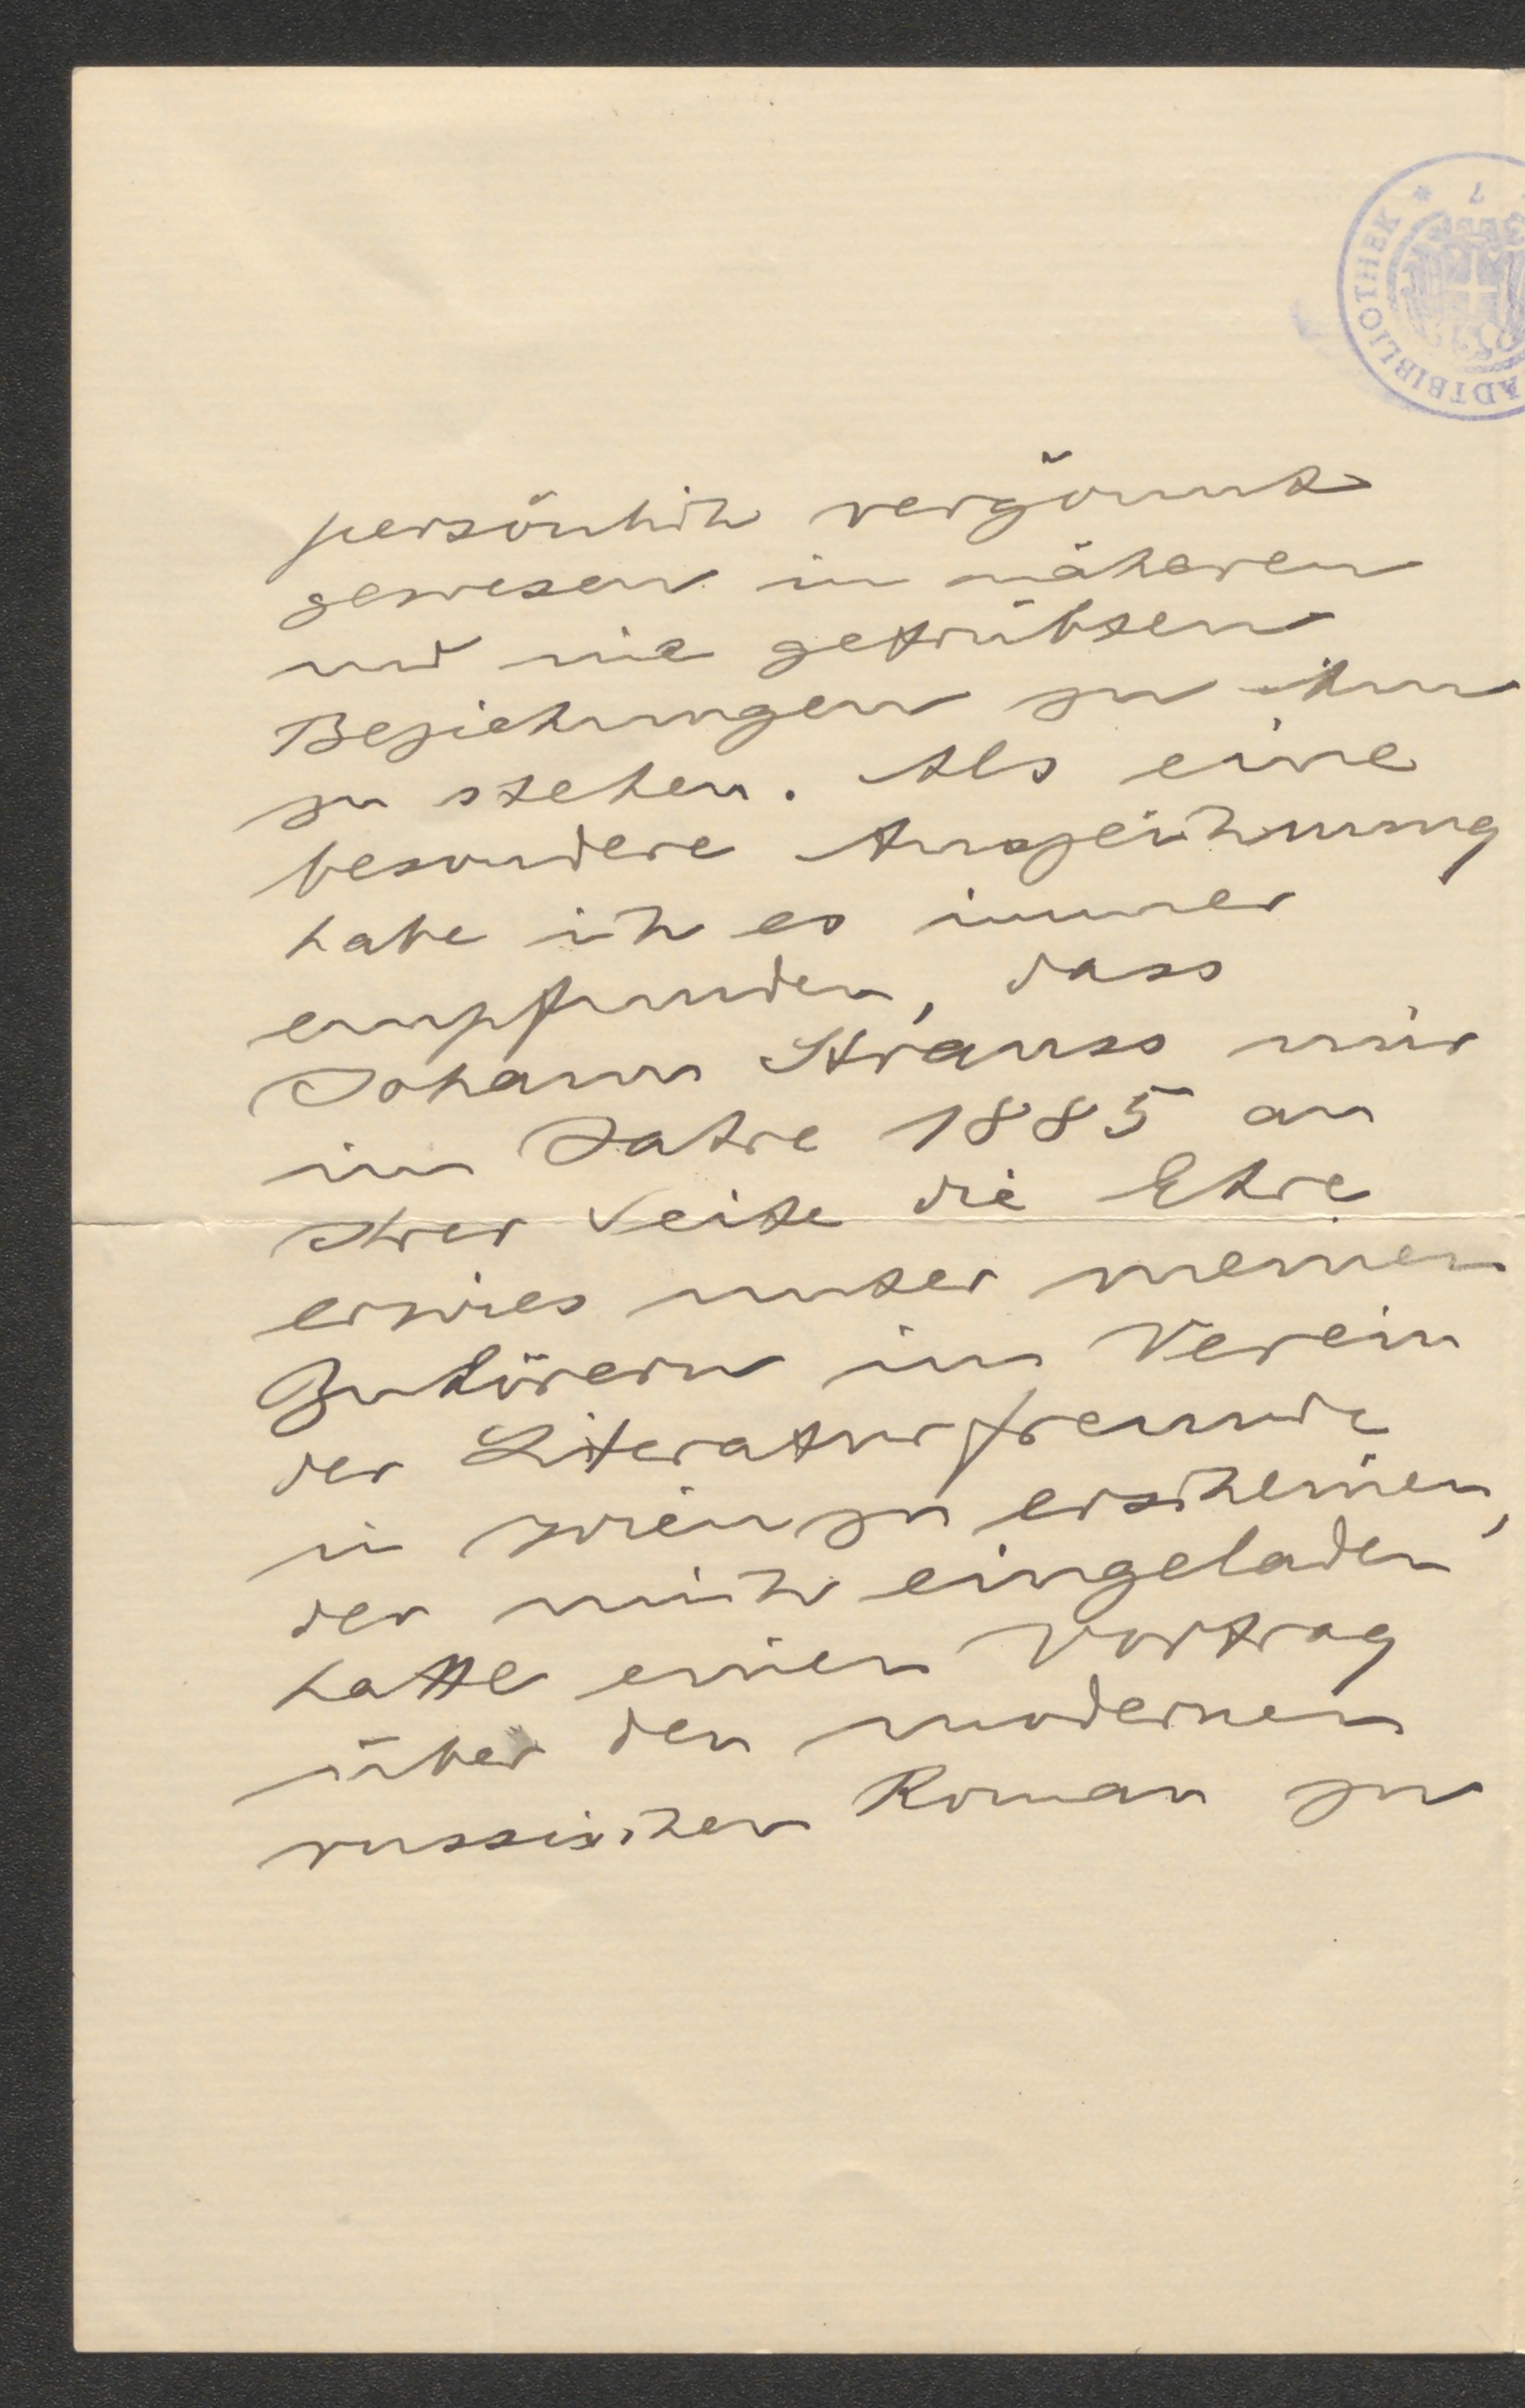 7
ADTBIBLIOTHEK *
persönlich vergönnt
gewesen in näheren
und nie getrübten
Beziehungen zu ihm
zu stehen. Als eine
besondere Auszeichnung
habe ich es immer
empfunden, dass
Johann Strauss mir
im Jahre 1885 an
Ihrer Seite die Ehre
erwies unter meinen
Zuhörern im Verein
der Literaturfreunde
in Wien zu erscheinen,
der mich eingeladen
hatte einen Vortrag
über den modernen
russischen Roman zu